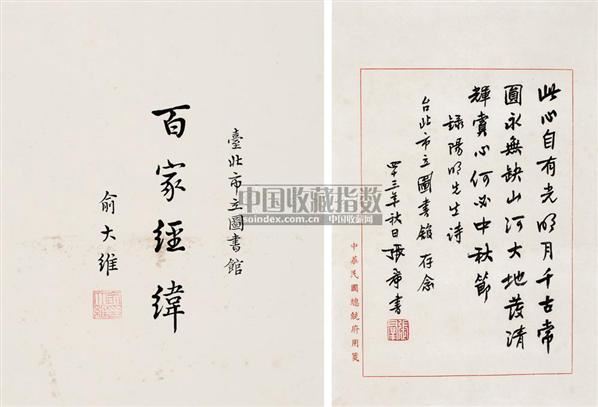 臺北市立圖書館
百家經緯
俞大維
此心自有光明月千古常
圓永無缺山河大地發清
輝賞心何必中秋節
錄陽明先生詩
台北市立圖書館存念
四十三年秋日張羣書
張羣
中華民國總統府用箋
中国收藏指数
soindex.com.cn 中国收藏网